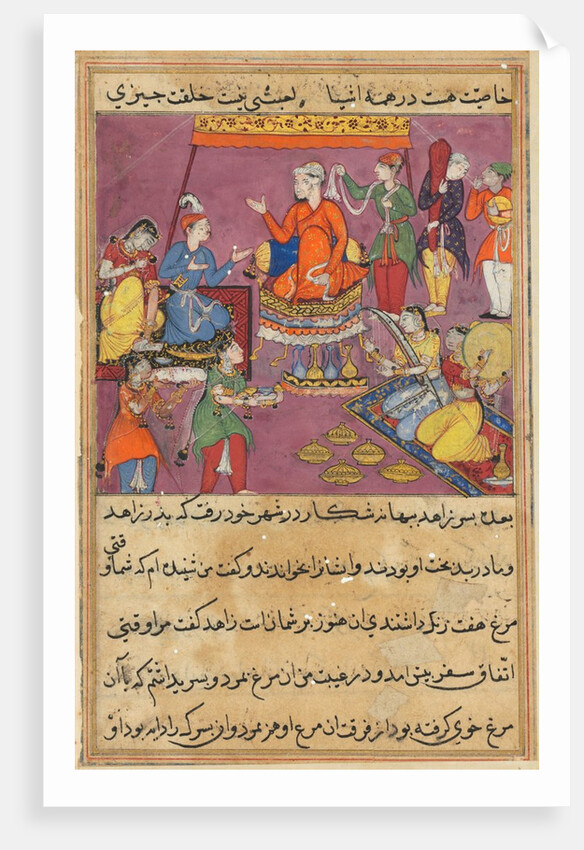 خاصیت هست در همه اشیا لعبتی نیست خلقت چیزی
بعده پسر زاهد ببهانه شکار در شهر خود رفت که پدر زاهد
و مادر بدبخت او بودند و ایشانرا بخواند و گفت من شنیده ام که شما وقتی
مرغ هفت رنگ داشتند ی ان هنوز بر شمان است زاهد گفت مرا وقتی
اتفاق سفر پیش امد و در غیبت من ان مرغ نمرد و پسر ید انتم که باآن
مرغ خوی گرفته بود از فرقت ان مرغ او هم نمرد وان پسر که را دایه بود او